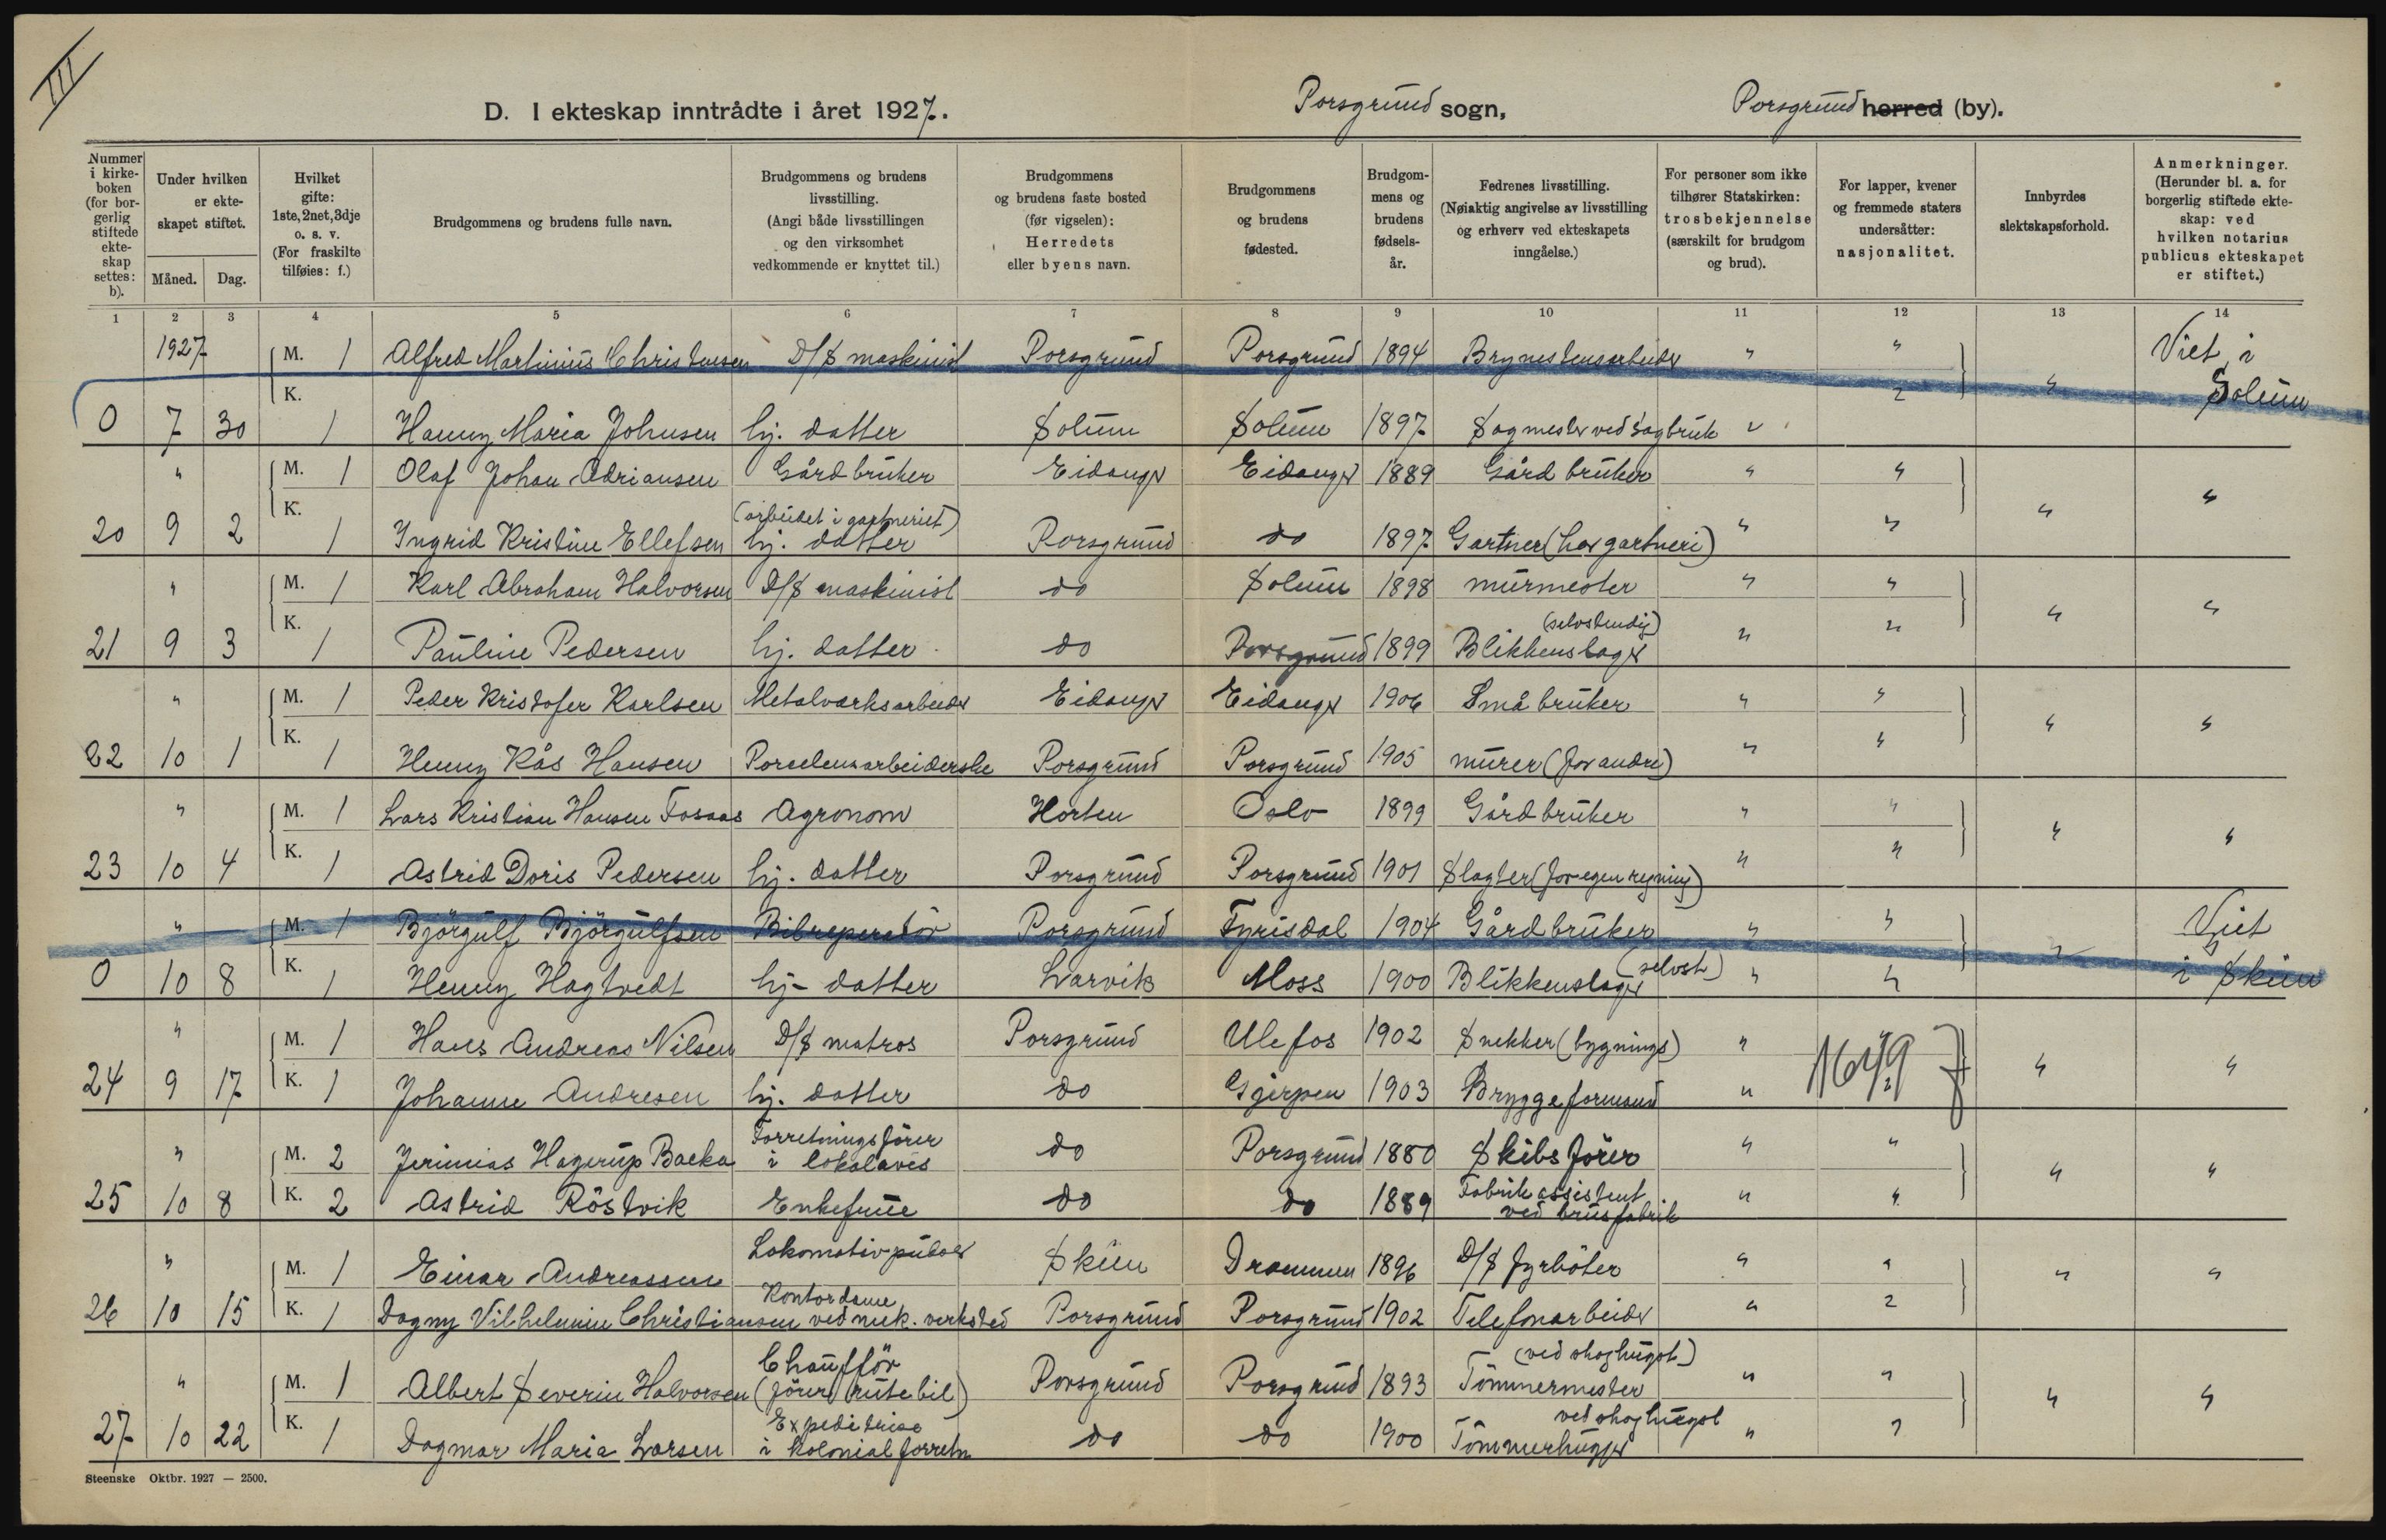 III
D. I ekteskap inntrådte i året 1927. Porsgrund sogn, Porsgrund herred (by).
Nummer i kirkeboken (for borgerlig stiftede ekteskap settes: b).
Under hvilken er ekteskapet stiftet. Måned. Dag.
Hvilket gifte: 1ste, 2net, 3dje o. s. v. (For fraskilte tilføies: f.)
Brudgommens og brudens fulle navn.
Brudgommens og brudens livsstilling. (Angi både livsstillingen og den virksomhet vedkommende er knyttet til.)
Brudgommens og brudens faste bosted (før vigselen): Herredets eller byens navn.
Brudgommens og brudens fødested.
Brudgommens og brudens fødselsår.
Fedrenes livsstilling. (Nøiaktig angivelse av livsstilling og erhverv ved ekteskapets inngåelse.)
For personer som ikke tilhører Statskirken: trosbekjennelse (særskilt for brudgom og brud).
For lapper, kvener og fremmede staters undersåtter: nasjonalitet.
Innbyrdes slektskapsforhold.
Anmerkninger. (Herunder bl. a. for borgerlig stiftede ekteskap: ved hvilken notarius publicus ekteskapet er stiftet.)
1 2 3 4 5 6 7 8 9 10 11 12 13 14
1927 M. 1 Alfred Martinius Christensen D/S maskinist Porsgrund Porsgrund 1894 Brynestensarbeider " " Viet i
0 7 30 K. 1 Hanny Maria Johnsen hj. datter Solum Solum 1897 Sagmester ved sagbruk " " " Solum
" M. 1 Olaf Johan Adriansen Gårdbruker Eidanger Eidanger 1889 Gårdbruker " "
(arbeidet i gartneriet)
20 9 2 K. 1 Ingrid Kristine Ellefsen hj. datter Porsgrund do 1897 Gartner (har gartneri) " " " "
" M. 1 Karl Abraham Halvorsen D/S maskinist do Solum 1898 murmester " "
(selvstendig)
21 9 3 K. 1 Pauline Pedersen hj. datter do Porsgrund 1899 Blikkenslager " " " "
" M. 1 Peder Kristofer Karlsen Metalværksarbeider Eidanger Eidanger 1906 Småbruker " "
22 10 1 K. 1 Henny Kås Hansen Porcelensarbeiderske Porsgrund Porsgrund 1905 murer (for andre) " " " "
" M. 1 Lars Kristian Hansen Fosaas Agronom Horten Oslo 1899 Gårdbruker " "
23 10 4 K. 1 Astrid Doris Pedersen hj. datter Porsgrund Porsgrund 1901 Slagter (for egen regning) " " " "
" M. 1 Björgulf Björgulfsen Bilreperatör Porsgrund Fyrisdal 1904 Gårdbruker " " Viet
0 10 8 K. 1 Henny Hagtvedt hj. datter Larvik Moss 1900 Blikkenslager (selvst) " " " i Skien
" M. 1 Hans Andreas Nilsen D/S matros Porsgrund Ulefos 1902 Snekker (bygnings) " "
24 9 17 K. 1 Johanne Andresen hj. datter do Gjerpen 1903 Bryggeformand " " " "
1649
" M. 2 Jerimias Hagerup Backa Forretningsfører i lokalavis do Porsgrund 1880 Skibsfører " "
25 10 8 K. 2 Astrid Röstvik Enkefrue do do 1889 Fabrikassistent ved brusfabrik " " " "
" M. 1 Einar Andreassen Lokomotivpudser Skien Drammen 1896 D/S fyrböter " "
26 10 15 K. 1 Dagny Vilhelmine Christiansen Kontordame ved mek. verksted Porsgrund Porsgrund 1902 Telefonarbeider " " " "
" M. 1 Albert Severin Halvorsen Chaufför (fører rutebil) Porsgrund Porsgrund 1893 Tömmermester (ved skoghugst) " "
27 10 22 K. 1 Dagmar Maria Larsen Expeditrise i Kolonialforretn do do 1900 Tömmerhugger ved skoghugst " " " "
Steenske Oktbr. 1927 — 2500.